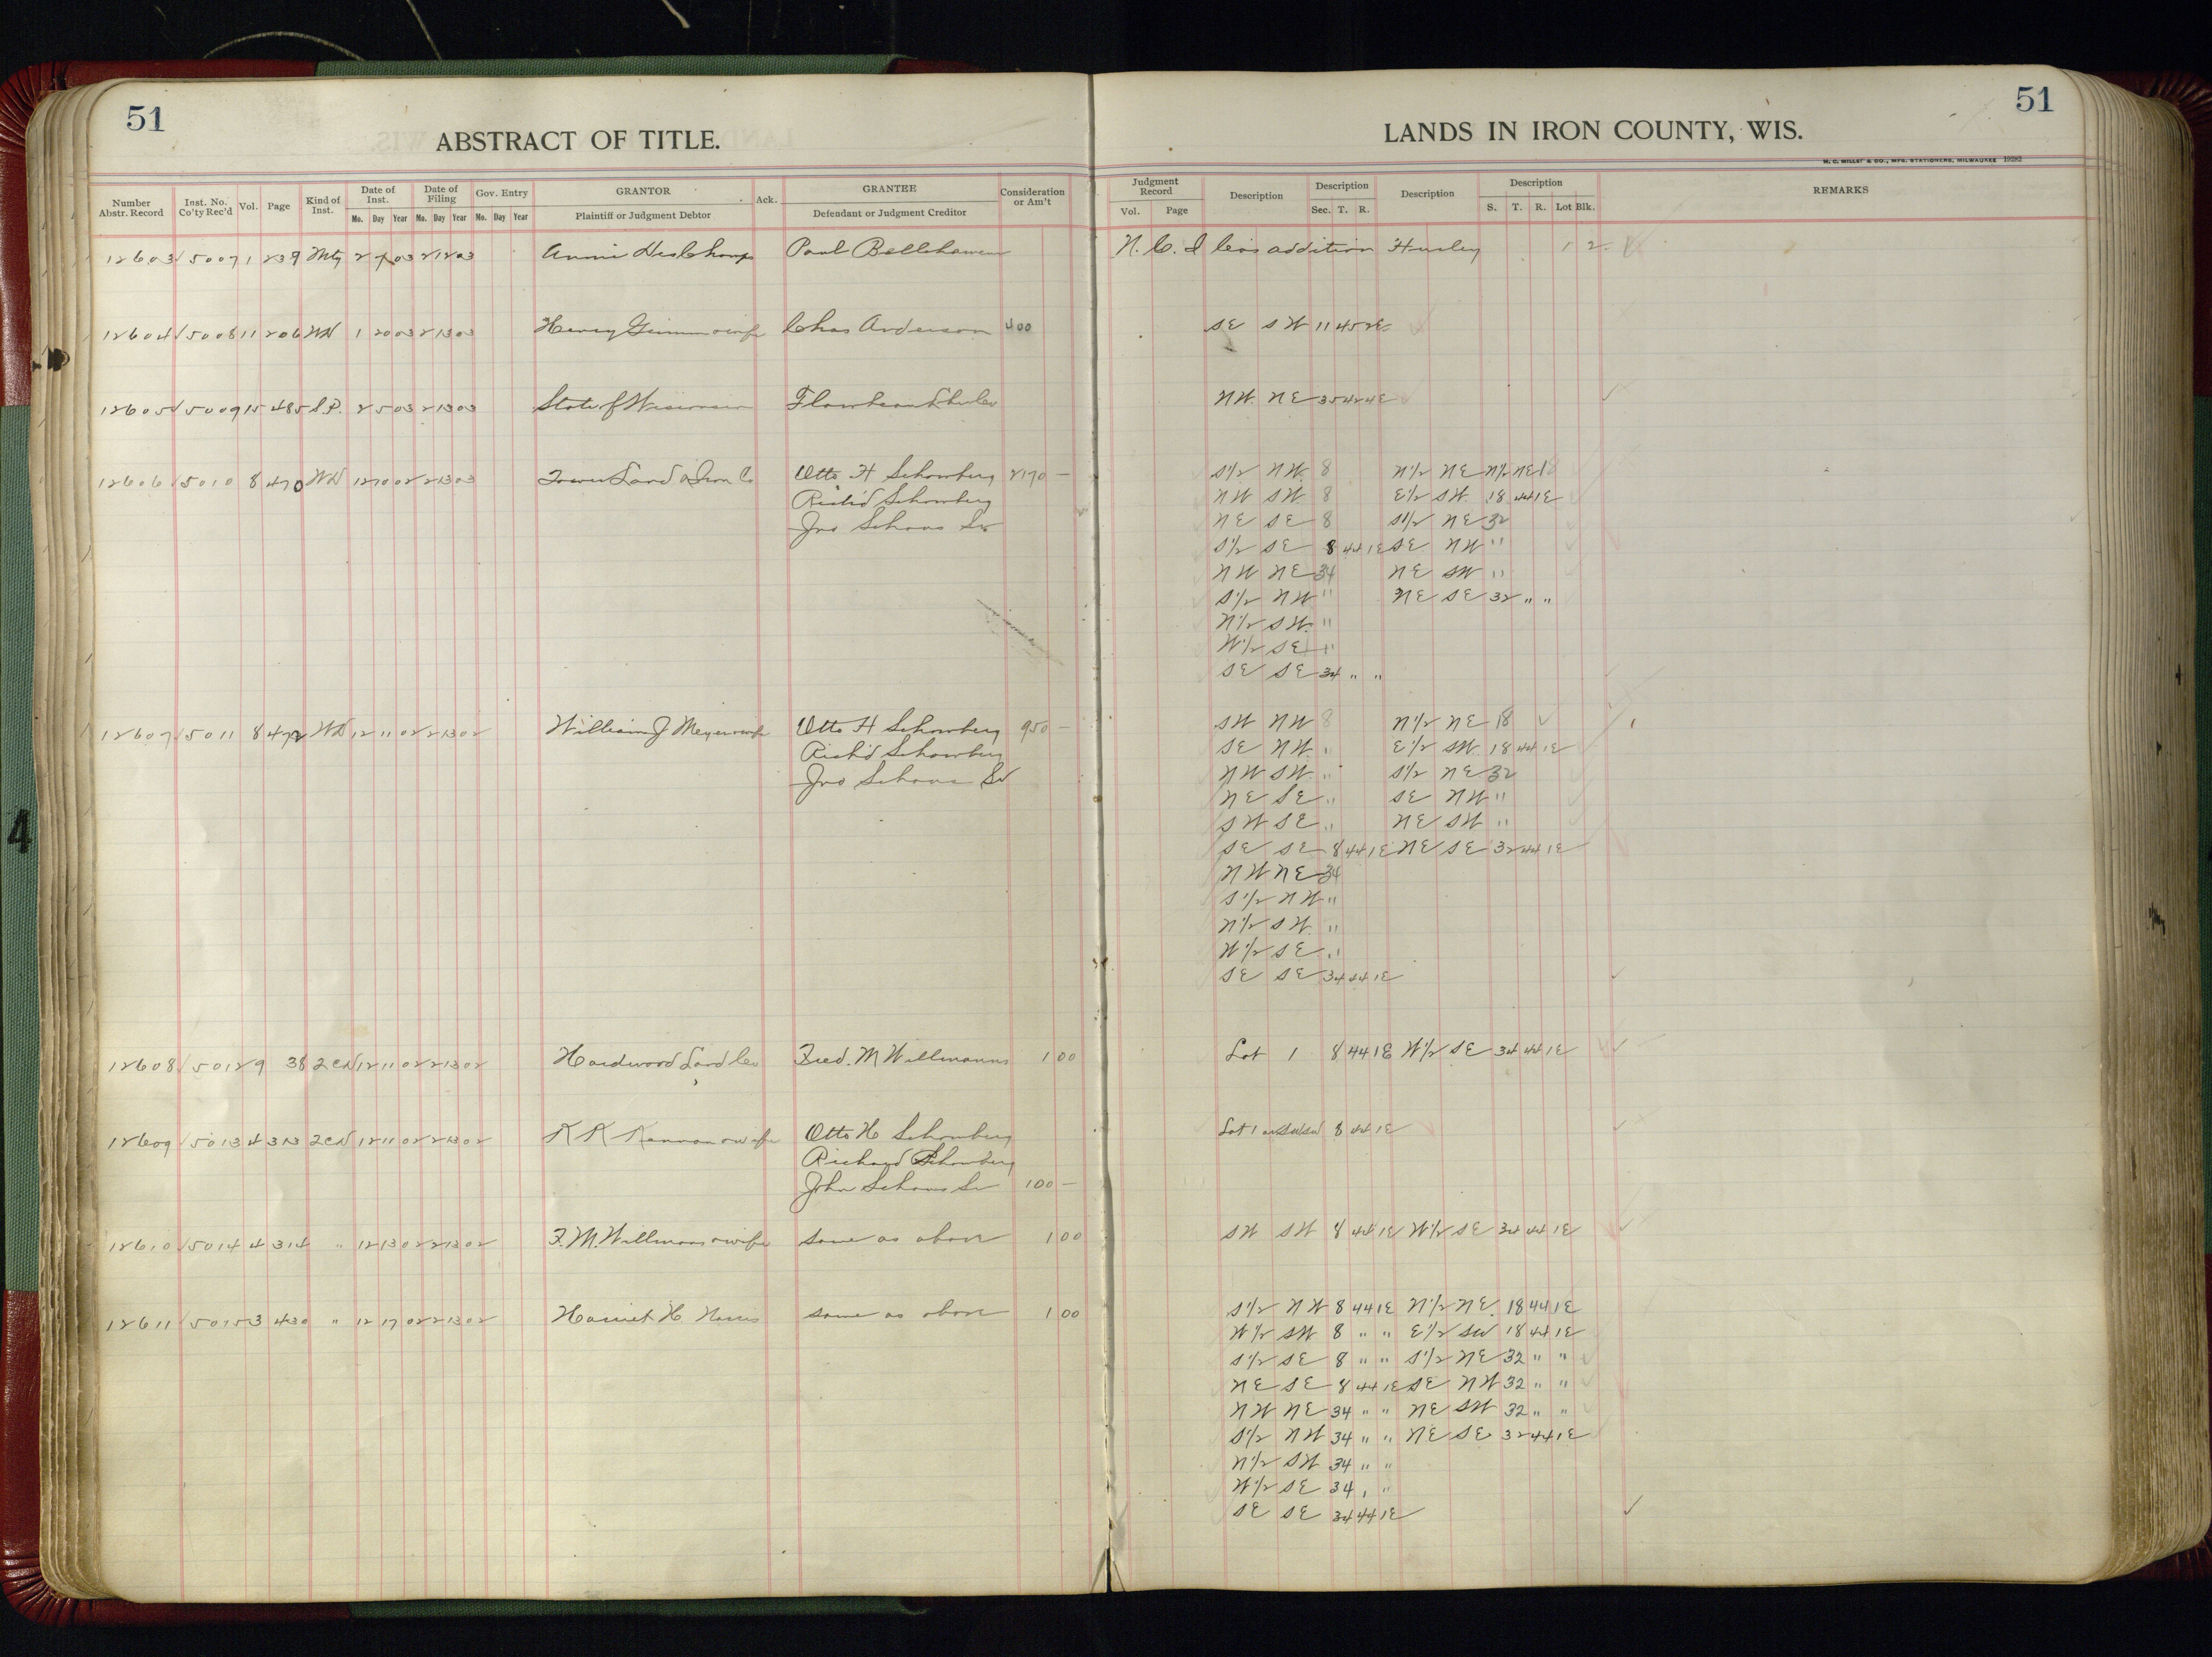 51
ABSTRACT OF TITLE.
Number Abstr. Record | Inst. No. Co'ty Rec'd | Vol. | Page | Kind of Inst. | Date of Inst. Mo. Day Year | Date of Filing Mo. Day Year | Gov. Entry Mo. Day Year | GRANTOR Plaintiff or Judgment Debtor | Ack. | GRANTEE Defendant or Judgment Creditor | Consideration or Am't
12603 5007 1 239 Mtg 2 7 03 2 12 03 Annie DesChamps Paul
12604 5008 11 206 WD 1 20 03 2 13 03 Henry & wife Chas Anderson 400
12605 5009 15 485 S.P. 2 5 03 2 13 03 State of Wisconsin
12606 5010 8 470 WD 12 10 02 2 13 03 Tower Land & Iron Co Otto H Schomberg 2170 —
Rich'd Schomberg
Jno Schaus Sr
12607 5011 8 472 WD 12 11 02 2 13 02 William J Meyer & wife Otto H Schomberg 950 —
Rich'd Schomberg
Jno Schaus Sr
12608 5012 9 38 2CD 12 11 02 2 13 02 Hardwood Land Co Fred. M Willmanns 1 00
12609 5013 4 313 2CD 12 11 02 2 13 02 K K Kennan & wife Otto H Schomberg
Richard Schomberg
John Schaus Sr 100 —
12610 5014 4 314 " 12 13 02 2 13 02 F. M. Willmans & wife same as above 1 00
12611 5015 3 430 " 12 17 02 2 13 02 Harriet H same as above 1 00
51
LANDS IN IRON COUNTY, WIS.
H. C. MILLER & CO., MFG. STATIONERS, MILWAUKEE 19282
Judgment Record Vol. Page | Description | Description Sec. T. R. | Description | Description S. T. R. Lot Blk. | REMARKS
N. C. I Co's addition Hurley 1 2
SE SW 11 45 2E
NW NE 35 42 4E
S1/2 NW 8 N1/2 NE N1/2 NE 18
NW SW 8 E1/2 SW 18 44 1E
NE SE 8 S1/2 NE 32
S1/2 SE 8 44 1E SE NW "
NW NE 34 NE SW "
S1/2 NW " NE SE 32 " "
N1/2 SW "
W1/2 SE "
SE SE 34 " "
SW NW 8 N1/2 NE 18
SE NW " E1/2 SW 18 44 1E
NW SW " S1/2 NE 32
NE SE " SE NW "
SW SE " NE SW "
SE SE 8 44 1E NE SE 32 44 1E
NW NE 34
S1/2 NW "
N1/2 SW "
W1/2 SE "
SE SE 34 44 1E
Lot 1 8 44 1E W1/2 SE 34 44 1E
Lot 1 or SWSW 8 44 1E
SW SW 8 44 1E W1/2 SE 34 44 1E
S1/2 NW 8 44 1E N1/2 NE 18 44 1E
W1/2 SW 8 " " E1/2 SW 18 44 1E
S1/2 SE 8 " " S1/2 NE 32 " "
NE SE 8 44 1E SE NW 32 " "
NW NE 34 " " NE SW 32 " "
S1/2 NW 34 " " NE SE 32 44 1E
N1/2 SW 34 " "
W1/2 SE 34 " "
SE SE 34 44 1E
4